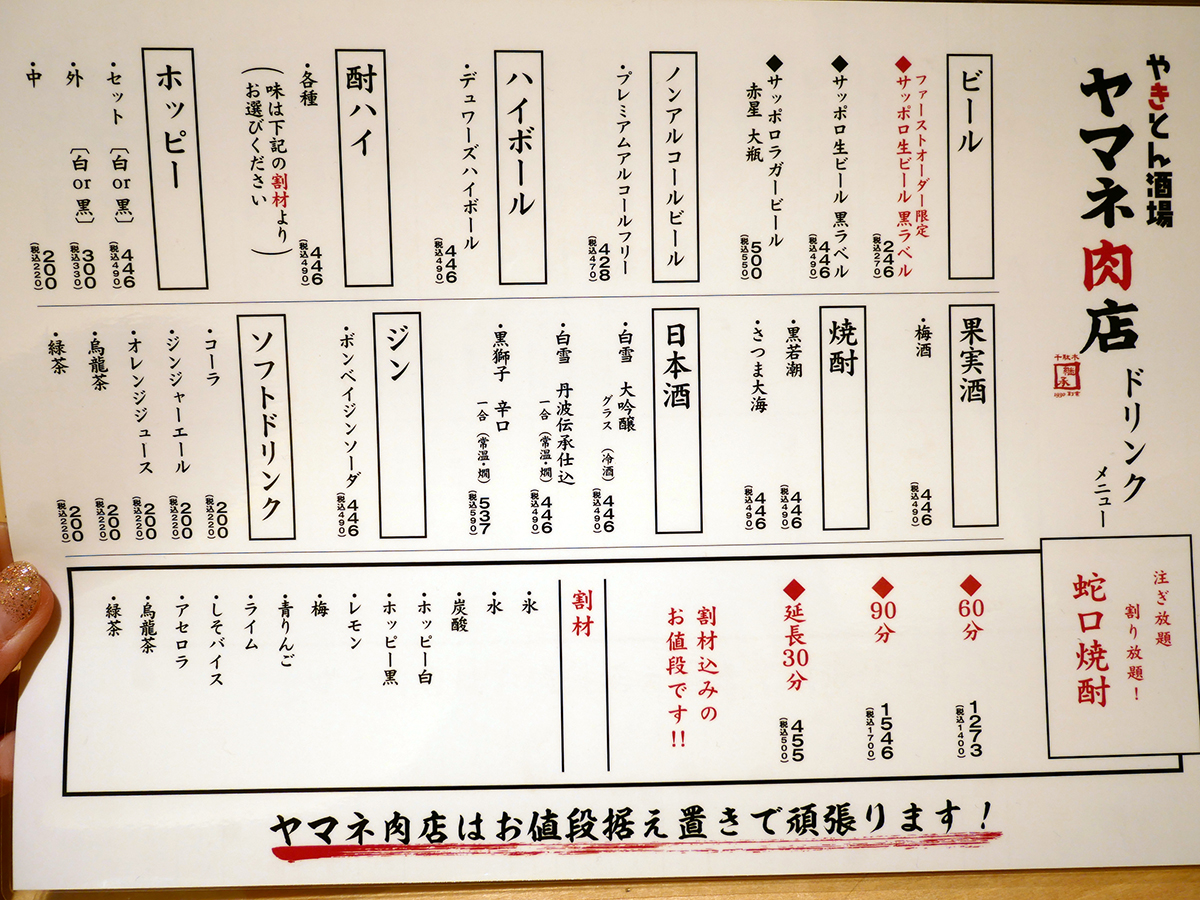 やきとん酒場
ヤマネ肉店
ドリンク
メニュー
千駄木
継承
ビール
ファーストオーダー限定
◆サッポロ生ビール 黒ラベル
246
(税込270)
◆サッポロ生ビール 黒ラベル
446
(税込490)
◆サッポロラガービール
赤星 大瓶
500
(税込550)
ノンアルコールビール
・プレミアムアルコールフリー
428
(税込470)
ハイボール
・デュワーズハイボール
446
(税込490)
酎ハイ
・各種
(味は下記の割材より
お選びください)
446
(税込490)
ホッピー
・セット〔白or黒〕
446
(税込490)
・外〔白or黒〕
300
(税込330)
・中
200
(税込220)
果実酒
・梅酒
446
(税込490)
焼酎
・黒若潮
446
(税込490)
・さつま大海
446
(税込490)
日本酒
・白雪 大吟醸
グラス (冷酒)
446
(税込490)
・白雪 丹波伝承仕込
一合 (常温・燗)
446
(税込490)
・黒獅子 辛口
一合 (常温・燗)
537
(税込590)
ジン
・ボンベイジンソーダ
446
(税込490)
ソフトドリンク
・コーラ
200
(税込220)
・ジンジャーエール
200
(税込220)
・オレンジジュース
200
(税込220)
・烏龍茶
200
(税込220)
・緑茶
200
(税込220)
注ぎ放題
割り放題!
蛇口焼酎
◆60分
1273
(税込1400)
◆90分
1546
(税込1700)
◆延長30分
455
(税込500)
割材込みの
お値段です!!
割材
・氷
・水
・炭酸
・ホッピー白
・ホッピー黒
・レモン
・梅
・青りんご
・ライム
・しそバイス
・アセロラ
・烏龍茶
・緑茶
ヤマネ肉店はお値段据え置きで頑張ります!